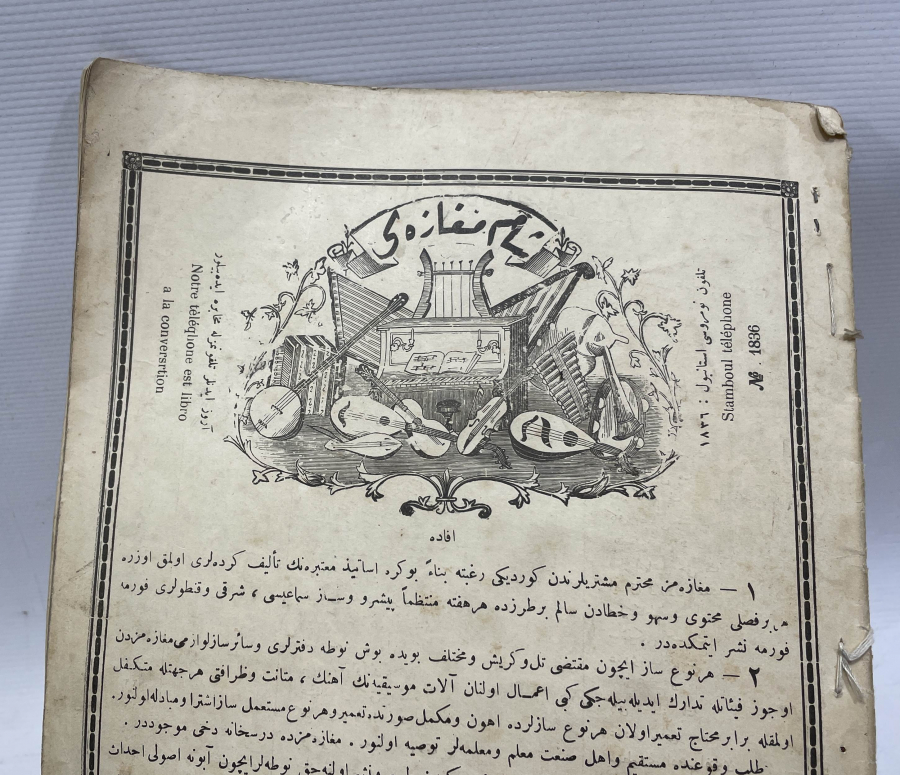 شام مغازه‌سی
تلفون نومروسی استانبول : ١٨٣٦
Stamboul téléphone
№ 1836
آروز ایدنلر تلفونمزله مخابره ایده‌بیلور
Notre télèqlione est libro
a la conversrtion
افاده
١ — مغازه‌مز محترم مشتریلرندن کوردیکی رغبته بناءً بوکره اساتیذ معتبره‌نك تألیف کرده‌لری اولمق اوزره
هر برفصلی محتوی وسهو وخطادن سالم برطرزده هرهفته منتظماً پیشرو وسـاز سماعیسی ، شرقی وقنطولری فورمه
فورمه نشر ایتمکده‌در .
٢ — هرنوع ساز ایچون مقتضی تل‌وکریش ومختلف بویده بوش نوطه دفترلری وسائرسازلوازمی‌مغازه‌مزدن
اوجوز فیئاتله تدارك ایدیله‌بیله‌جکی کبی اعمـال اولنان آلات موسیقیه‌نك آهنك ، متانت وظرافتی هرجهتله متکفل
اولمقله برابر محتاج تعمیراولان هرنوع سازلرده اهون ومکمل صورتده‌تعمیروهرنوع‌مستعمل سازاشتراومبادله‌اولنور.
طلب وقوعنده مستقیم واهل صنعت معلم ومعلمه‌لر توصیه اولنور . مغازه‌مزده درسخانه دخی موجوددر .
نوطه‌لرایچون آبونه اصولی احداث